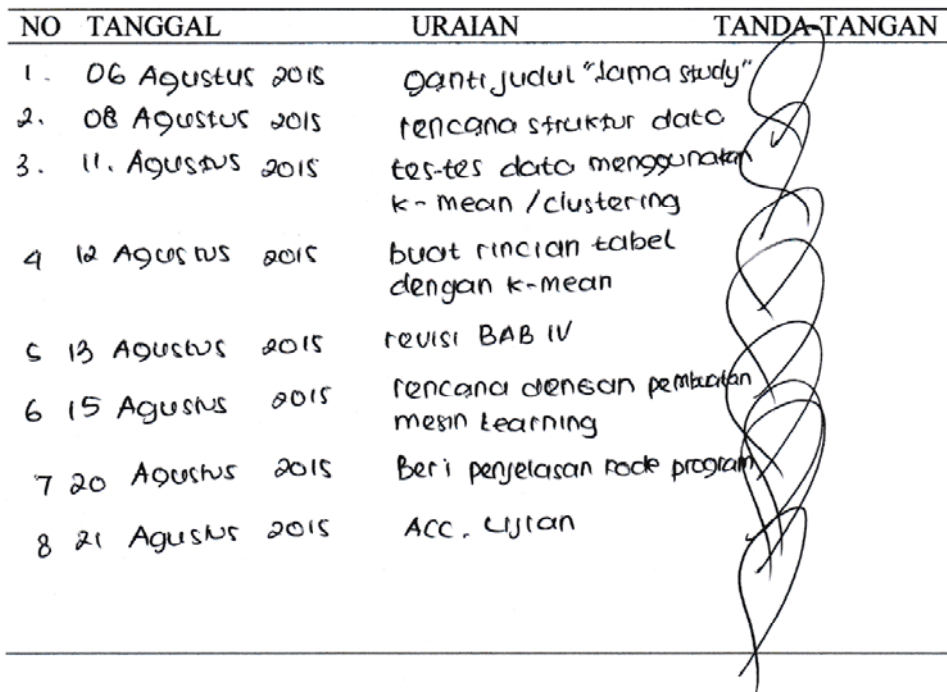 NO TANGGAL URAIAN TANDA TANGAN
1. 06 Agustus 2015 ganti judul "lama study"
2. 08 Agustus 2015 rencana struktur data
3. 11. Agustus 2015 tes-tes data menggunakan
k-mean / clustering
4 12 Agustus 2015 buat rincian tabel
dengan k-mean
5 13 Agustus 2015 revisi BAB IV
6 15 Agustus 2015 rencana dengan pembuatan
mesin Learning
7 20 Agustus 2015 Beri penjelasan kode program
8 21 Agustus 2015 ACC. Ujian